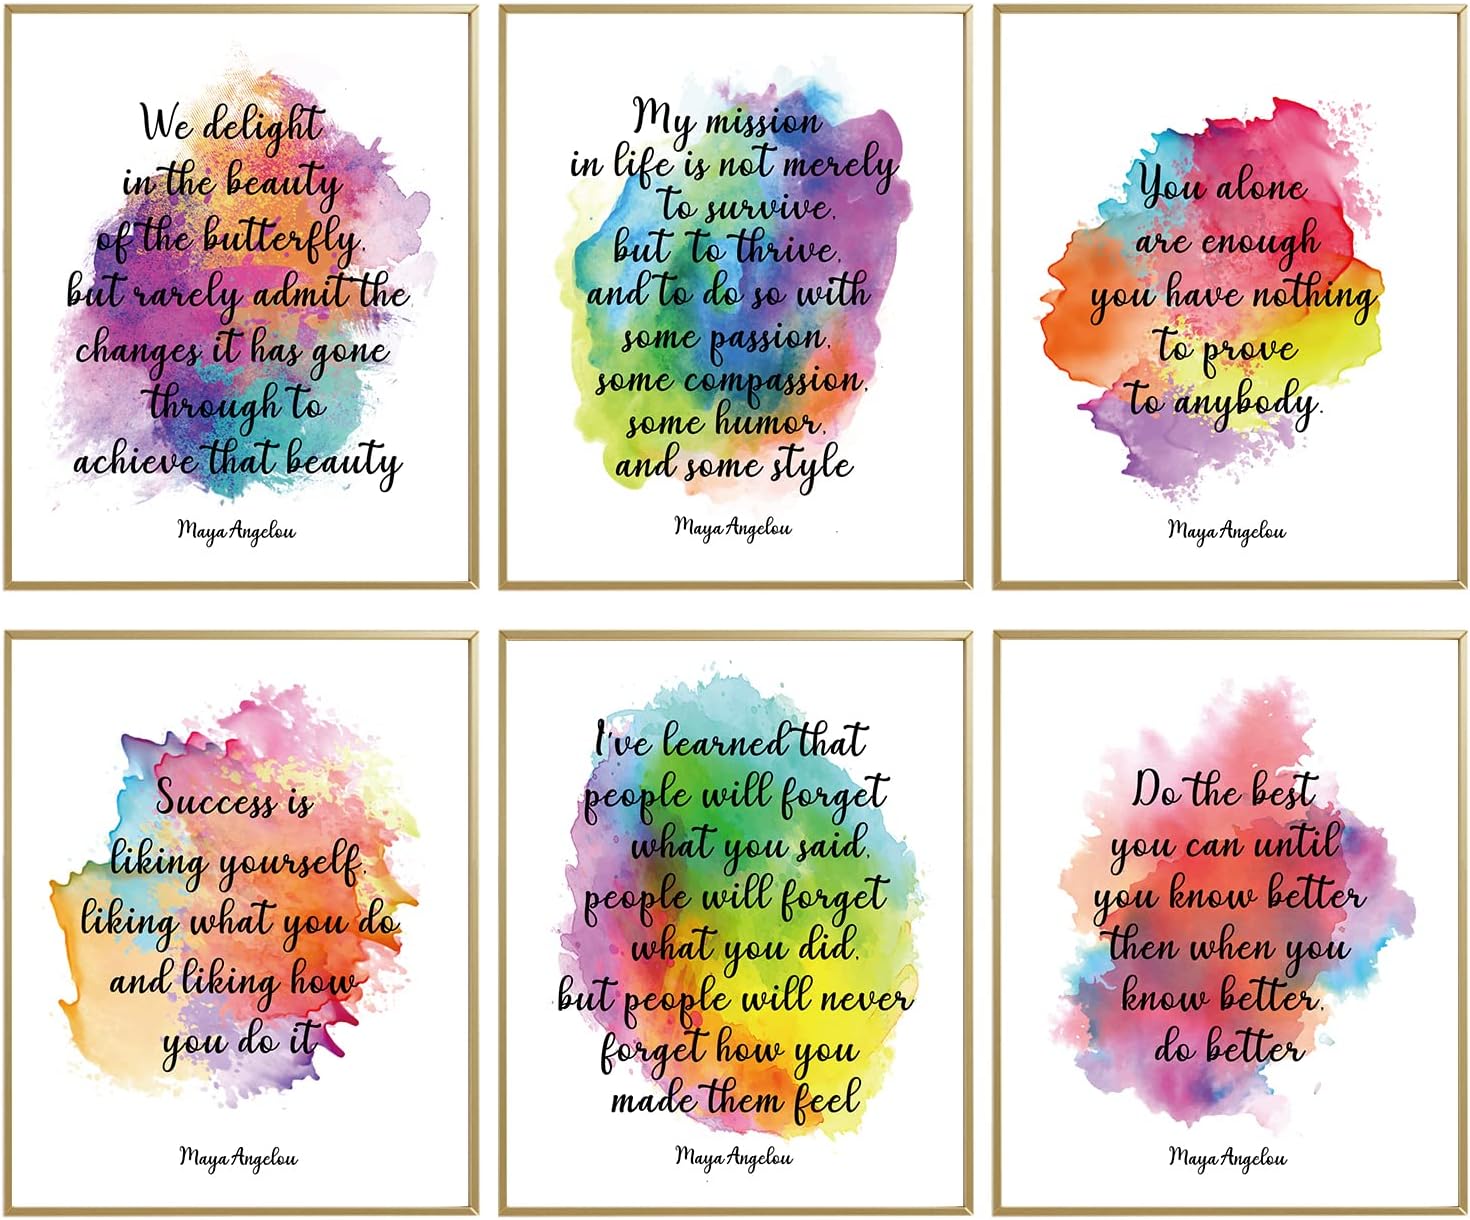 We delight
in the beauty
of the butterfly,
but rarely admit the
changes it has gone
through to
achieve that beauty
Maya Angelou
My mission
in life is not merely
to survive,
but to thrive,
and to do so with
some passion,
some compassion,
some humor,
and some style
Maya Angelou
You alone
are enough
you have nothing
to prove
to anybody.
Maya Angelou
Success is
liking yourself,
liking what you do
and liking how
you do it
Maya Angelou
I've learned that
people will forget
what you said,
people will forget
what you did,
but people will never
forget how you
made them feel
Maya Angelou
Do the best
you can until
you know better
then when you
know better,
do better
Maya Angelou